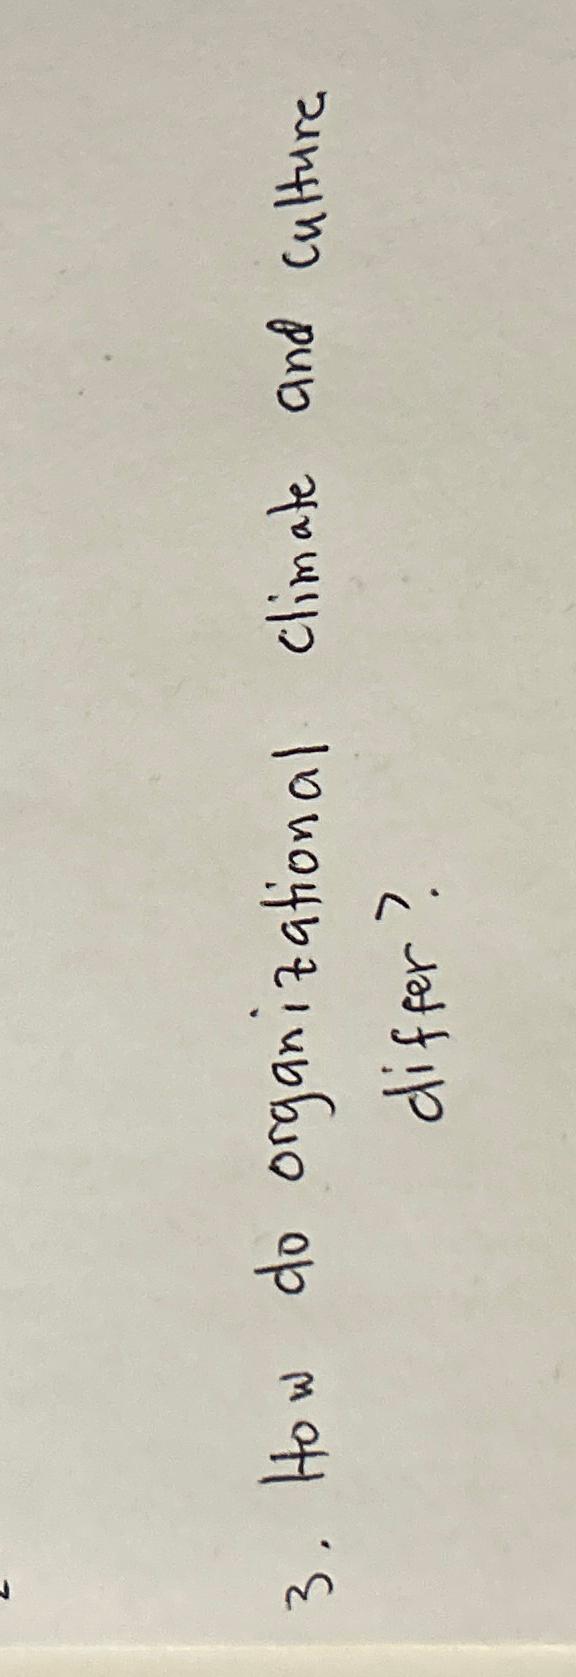 3. How do organizational climate and culture
differ?